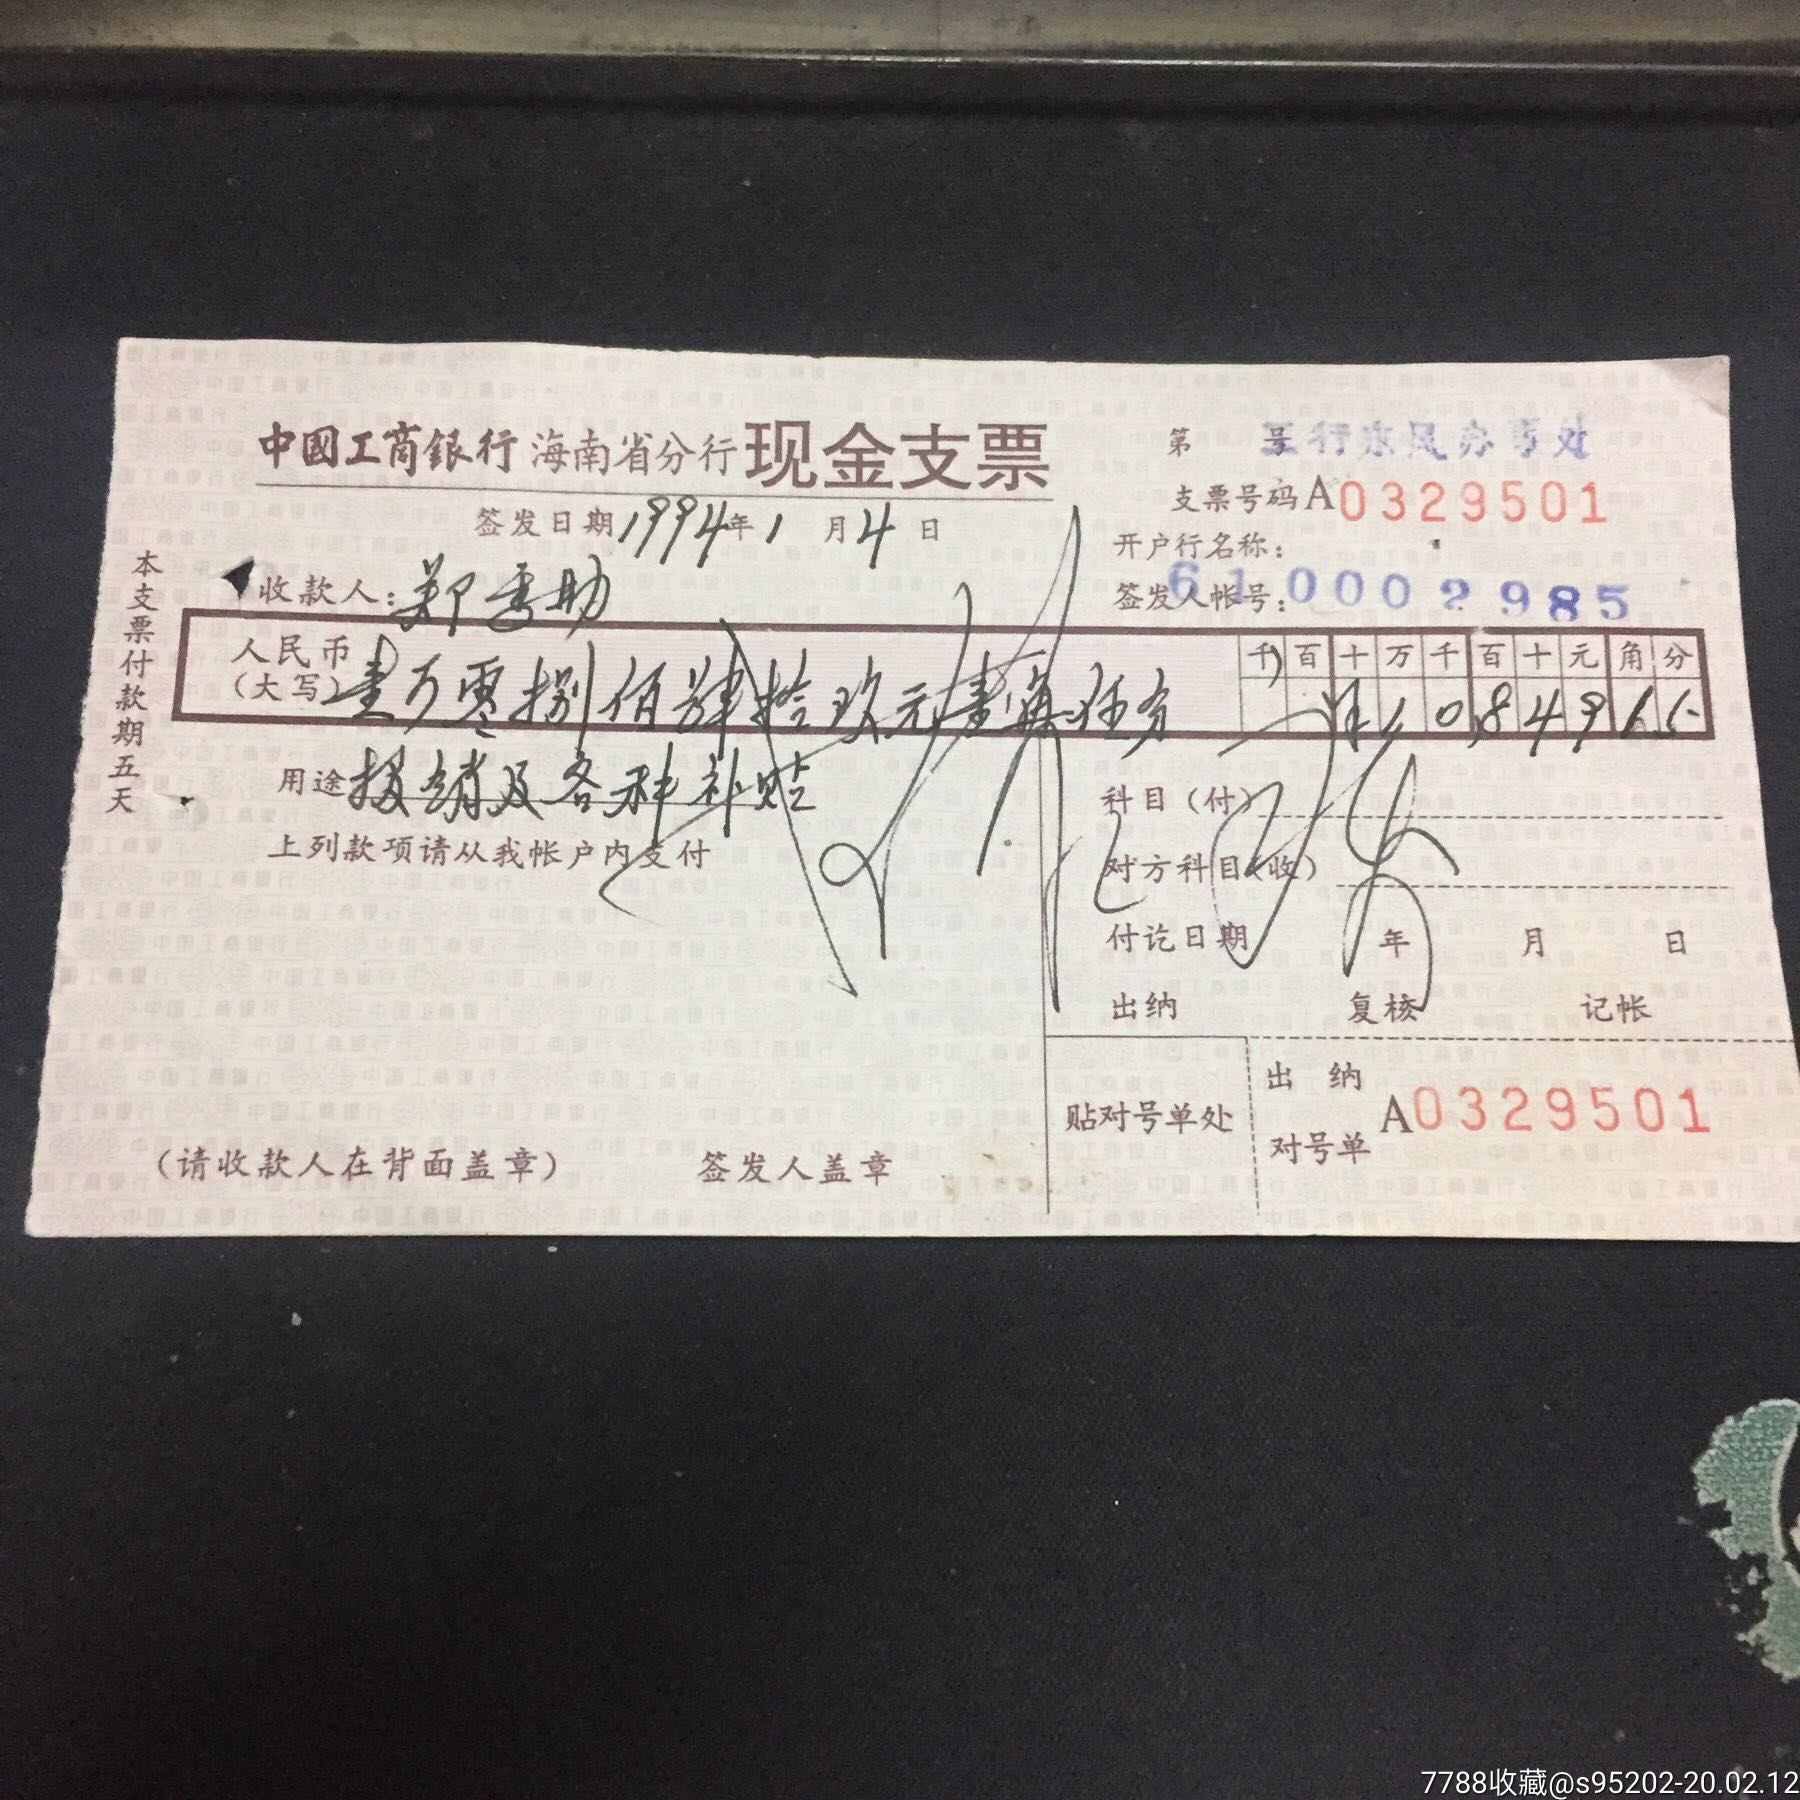 中國工商銀行 海南省分行 现金支票
第 号 工行东风办事处
支票号码 A0329501
签发日期 1994年1月4日
开户行名称：
收款人：郑香助
签发人帐号：61 0002985
本支票付款期五天
人民币（大写） 壹万零捌佰肆拾玖元壹角伍分
千百十万千百十元角分
¥1084915
用途 报销及各种补贴
上列款项请从我帐户内支付
科目（付）
对方科目（收）
付讫日期 年 月 日
出纳 复核 记帐
贴对号单处
出纳对号单 A0329501
（请收款人在背面盖章） 签发人盖章
7788收藏@s95202-20.02.12